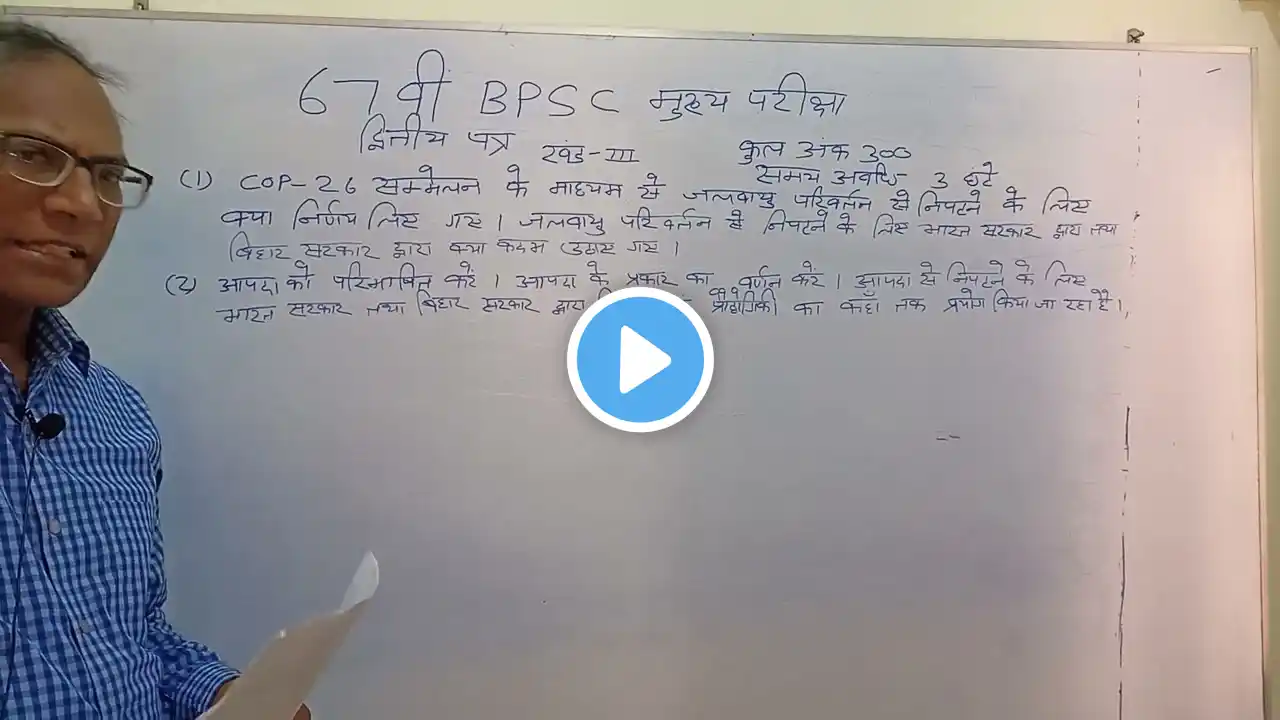 67वीं BPSC मुख्य परीक्षा
द्वितीय पत्र खंड-III कुल अंक 300
समय अवधि 3 घंटे
(1) COP-26 सम्मेलन के माध्यम से जलवायु परिवर्तन से निपटने के लिए
क्या निर्णय लिए गए । जलवायु परिवर्तन से निपटने के लिए भारत सरकार द्वारा तथा
बिहार सरकार द्वारा क्या कदम उठाए गए ।
(2) आपदा को परिभाषित करें । आपदा के प्रकार का वर्णन करें । आपदा से निपटने के लिए
भारत सरकार तथा बिहार सरकार द्वारा प्रौद्योगिकी का कहाँ तक प्रयोग किया जा रहा है ।